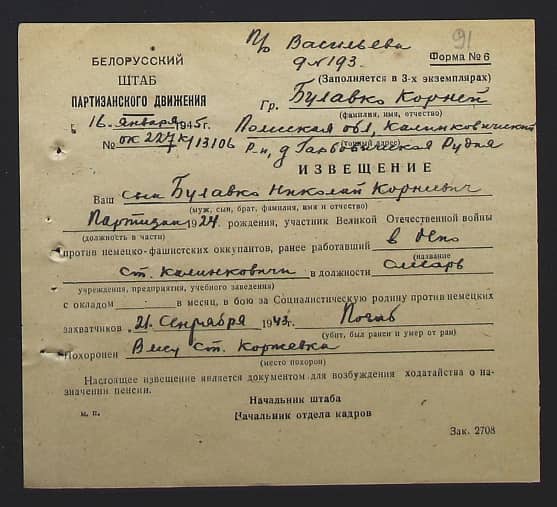 п/о Васильева
91
д №193.
БЕЛОРУССКИЙ
ШТАБ
ПАРТИЗАНСКОГО ДВИЖЕНИЯ
Форма № 6
(Заполняется в 3-х экземплярах)
Гр. Булавко Корней
(фамилия, имя, отчество)
16 января 1945г.
Полесская обл, Калинковичский
(точный адрес)
№ ок 227к/13106
р-н, д Рудня
ИЗВЕЩЕНИЕ
Ваш сын Булавко Николай Корневич
(муж, сын, брат, фамилия, имя и отчество)
Партизан 1924 рождения, участник Великой Отечественной войны
(должность в части)
против немецко-фашистских оккупантов, ранее работавший в депо
(название
ст. Калинковичи в должности слесарь
учреждения, предприятия, учебного заведения)
с окладом в месяц, в бою за Социалистическую родину против немецких
захватчиков „21" Сентября 1943г. Погиб
(убит, был ранен и умер от ран)
Похоронен В лесу ст. Коржевка
(место похорон)
Настоящее извещение является документом для возбуждения ходатайства о на-
значении пенсии.
Начальник штаба
м. п.
Начальник отдела кадров
Зак. 2708